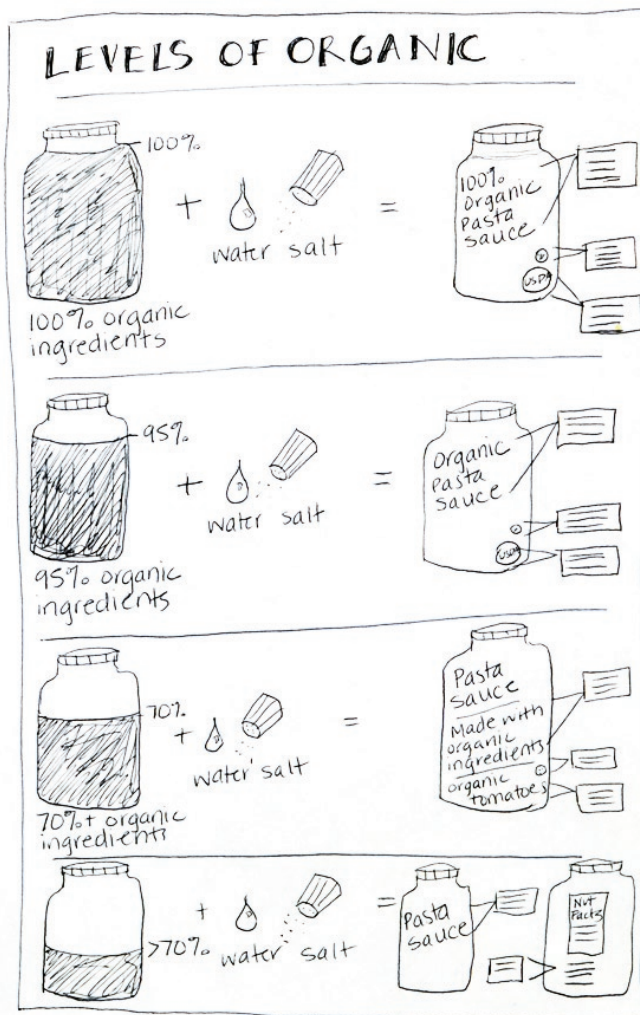 LEVELS OF ORGANIC
100%
+
water salt
=
100% organic
ingredients
100%
Organic
Pasta
sauce
USDA
95%
+
water salt
=
95% organic
ingredients
Organic
Pasta
sauce
USDA
70%
+
water salt
=
70%+ organic
ingredients
Pasta
sauce
Made with
organic
ingredients
organic
tomatoes
>70%
+
water salt
=
Pasta
sauce
Nut
Facts